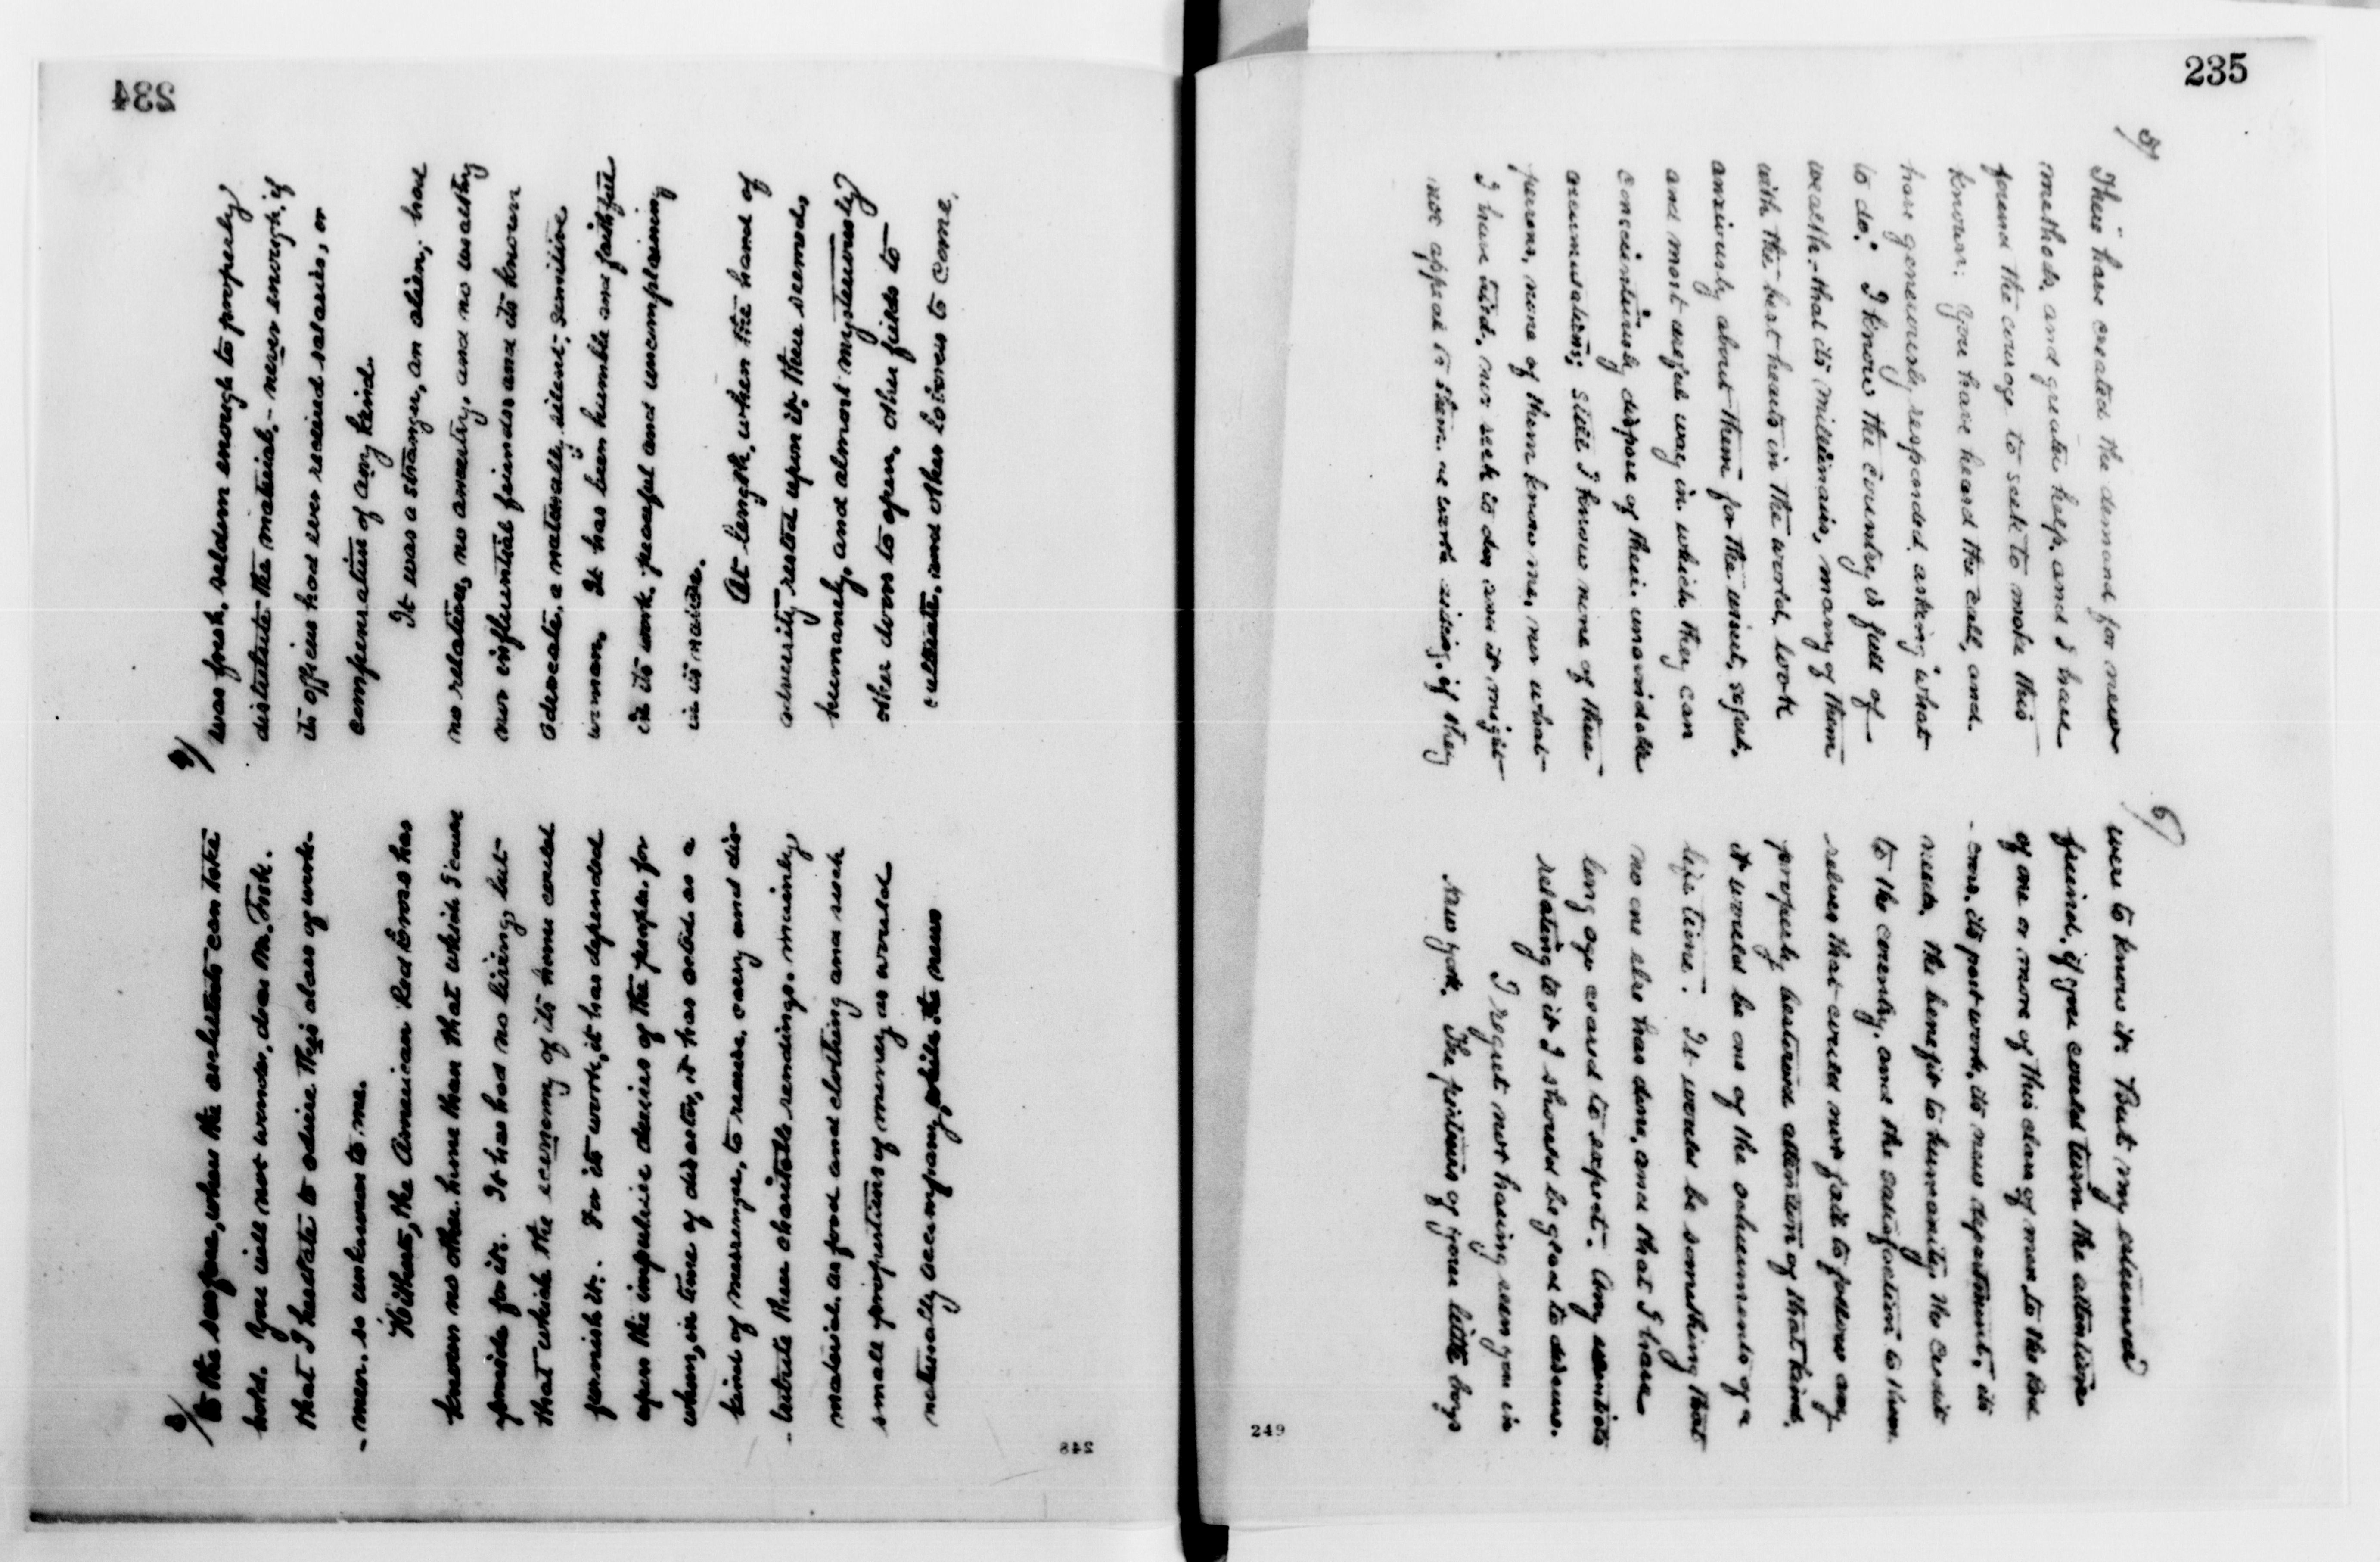 234
3/
to the seafare, when the architects can take
hold. You will not wonder, dear Mr. Fisk.
that I hesitate to advise this class of work-
-men. so unknown to me.
Hitherto, the American Red Cross has
known no other home than that which I could
provide for it. It has had no living but
that which the economy of its home could
furnish it. For its work, it has depended
upon the impulsive desires of the people. for
whom, in time of disaster, it has acted as a
kind of messenger, to receive. carry and dis-
-tribute these charitable sendings. mainly
material. as food and clothing and such
small proportions of money as would
naturally accompany, while the news
4/
was fresh, seldom enough to properly
distribute the material, - never enough, if
its officers had ever received salaries, or
compensation of any kind.
It was a stranger, an alien, had
no relatives, no ancestry, and no wealthy
nor influential friends and its known
advocate, a naturally silent, sensitive
woman. It has been humble and faithful
in its work. peaceful and uncomplaining
in its needs.
At length, when the hand of
adversity rested upon it. there seemed,
humanely, and almost mysteriously
other doors to open, other fields to
cultivate, and other laborers to come.
248
235
5/
These have created the demand for new
methods, and greater help, and I have
found the courage to seek to make this
known. You have heard the call, and
have generously responded, asking "what
to do." I know the country is full of
wealth, - that its millionairs, many of them
with the best hearts in the world, look
anxiously about them for the wisest, safest,
and most useful way in which they can
conscientiously dispose of their unavoidable
accumulations; still I know none of these
persons, none of them know me, nor what
I have tried, nor seek to do, and it might
not appeal to them as worth aiding, if they
6/
were to know it. But my esteemed
friend, if you could turn the attention
of one or more of this class of men, to the Red
-Cross, its past work, its new department, its
needs, the benefit to humanity, the credit
to the country, and the satisfaction to them-
selves that could not fail to follow any
properly bestowed attention of that kind,
it would be one of the achievements of a
life time. It would be something that
no one else has done, and that I have
long ago ceased to expect. Any
relating to it I should be glad to discuss.
I regret not having seen you in
New York. The pictures of your little boys
249